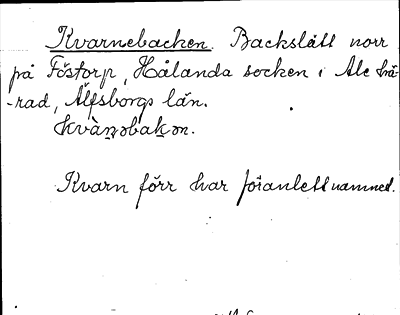 Kvarnebacken. Backslätt norr
på Föstorp, Hålanda socken i Ale hä-
-rad, Älfsborgs län.
Kvàṉəbaḵən.
Kvarn förr har föranlett namnet.